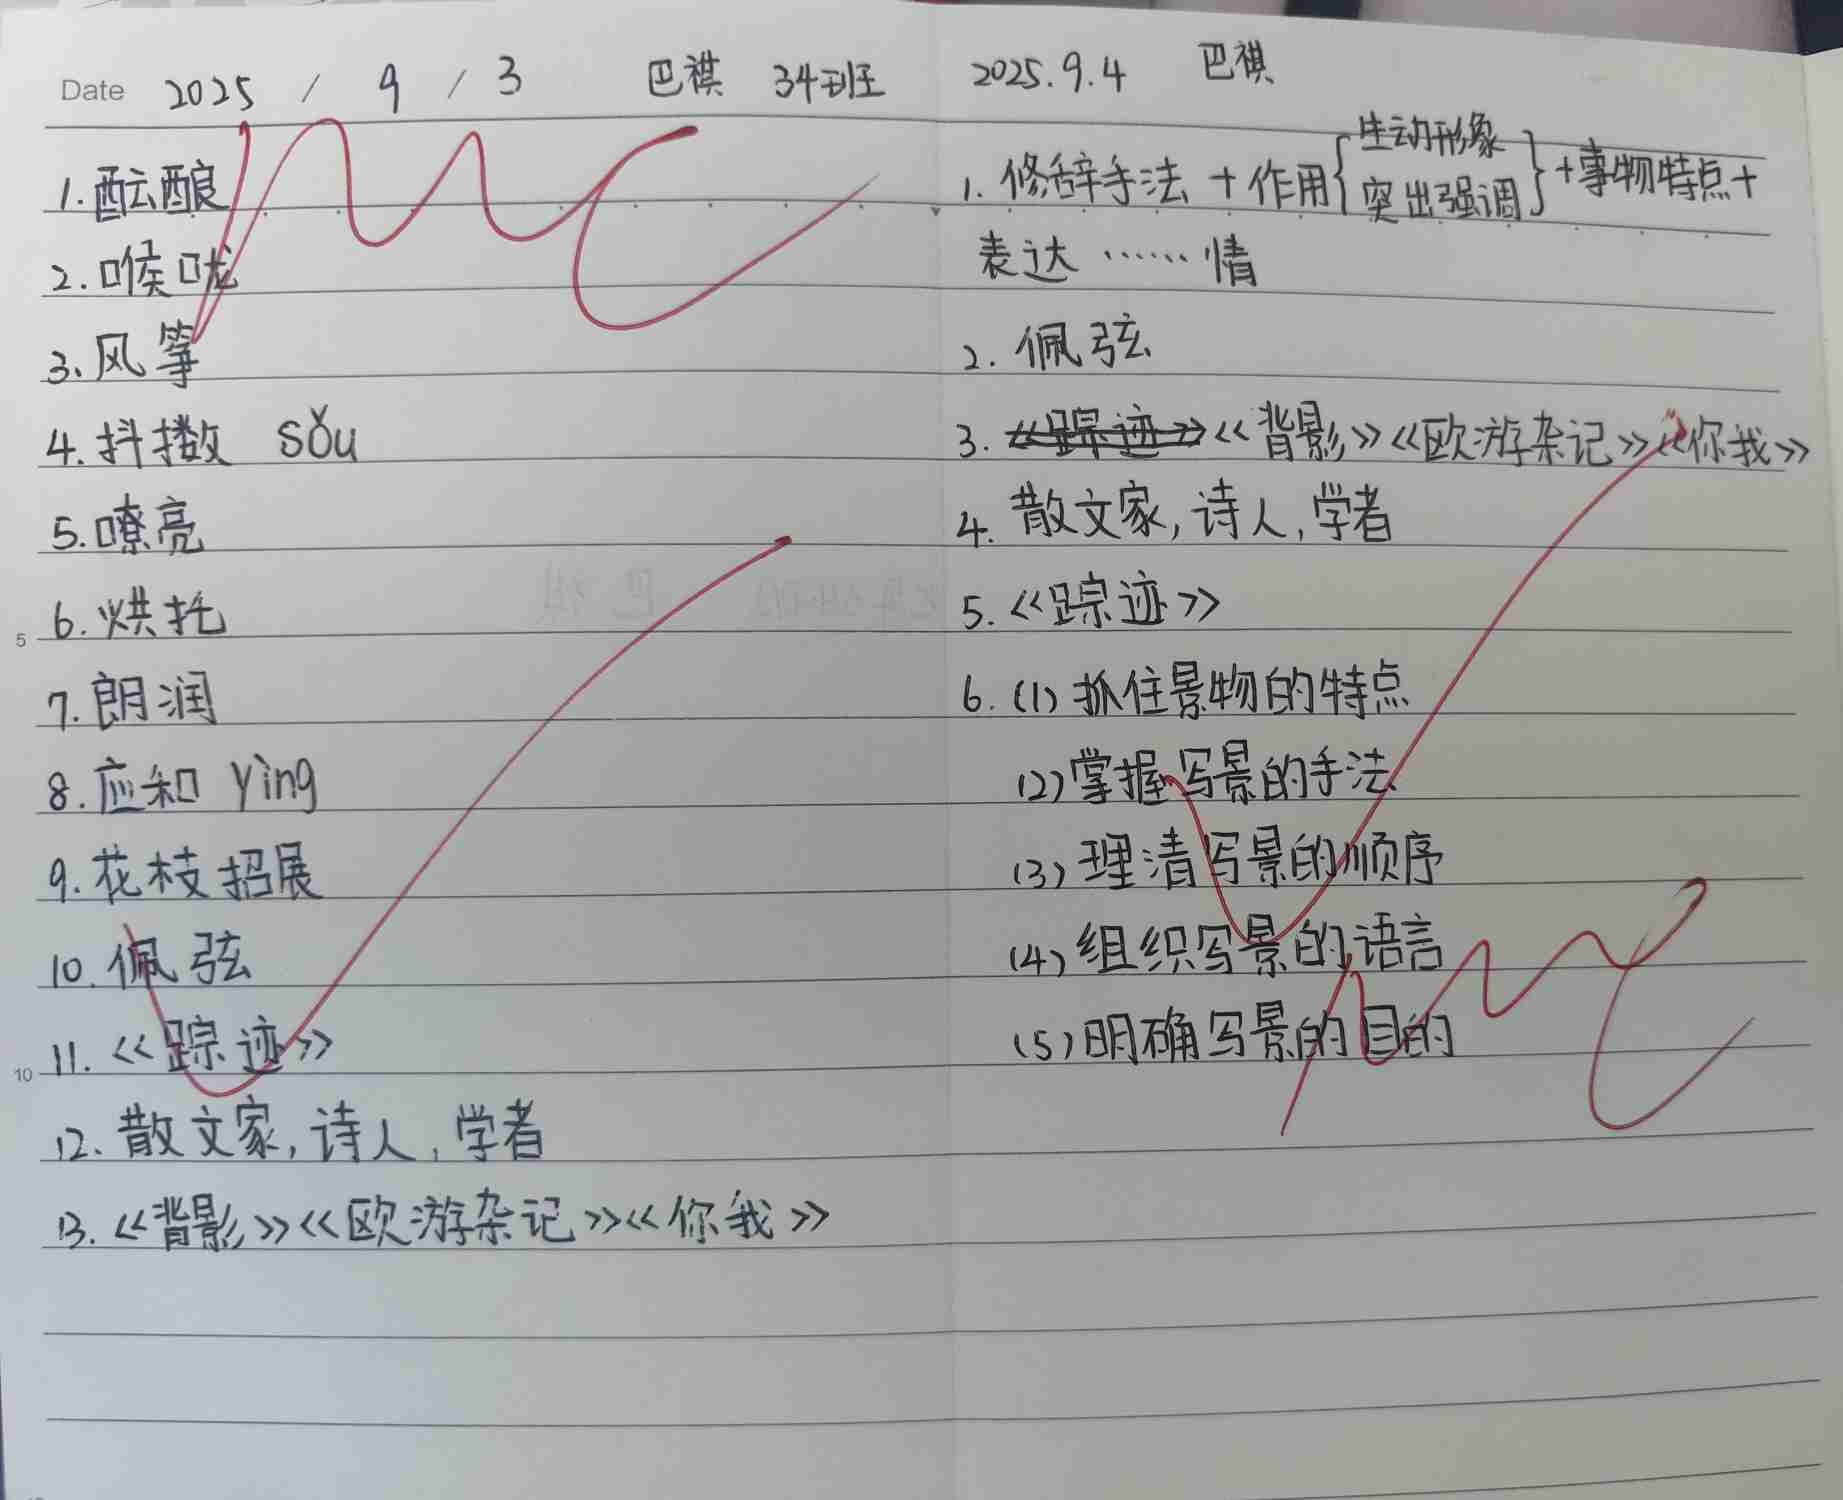 Date 2025 / 9 / 3 巴祺 34班
1. 酝酿
2. 喉咙
3. 风筝
4. 抖擞 sǒu
5. 嘹亮
5
6. 烘托
7. 朗润
8. 应和 yìng
9. 花枝招展
10. 佩弦
11. 《踪迹》
10
12. 散文家,诗人,学者
13. 《背影》《欧游杂记》《你我》
2025.9.4 巴祺
1. 修辞手法 + 作用{生动形象 突出强调}+事物特点+
表达……情
2. 佩弦
3. 《踪迹》《背影》《欧游杂记》《你我》
4. 散文家,诗人,学者
5. 《踪迹》
6. (1) 抓住景物的特点
(2) 掌握写景的手法
(3) 理清写景的顺序
(4) 组织写景的语言
(5) 明确写景的目的